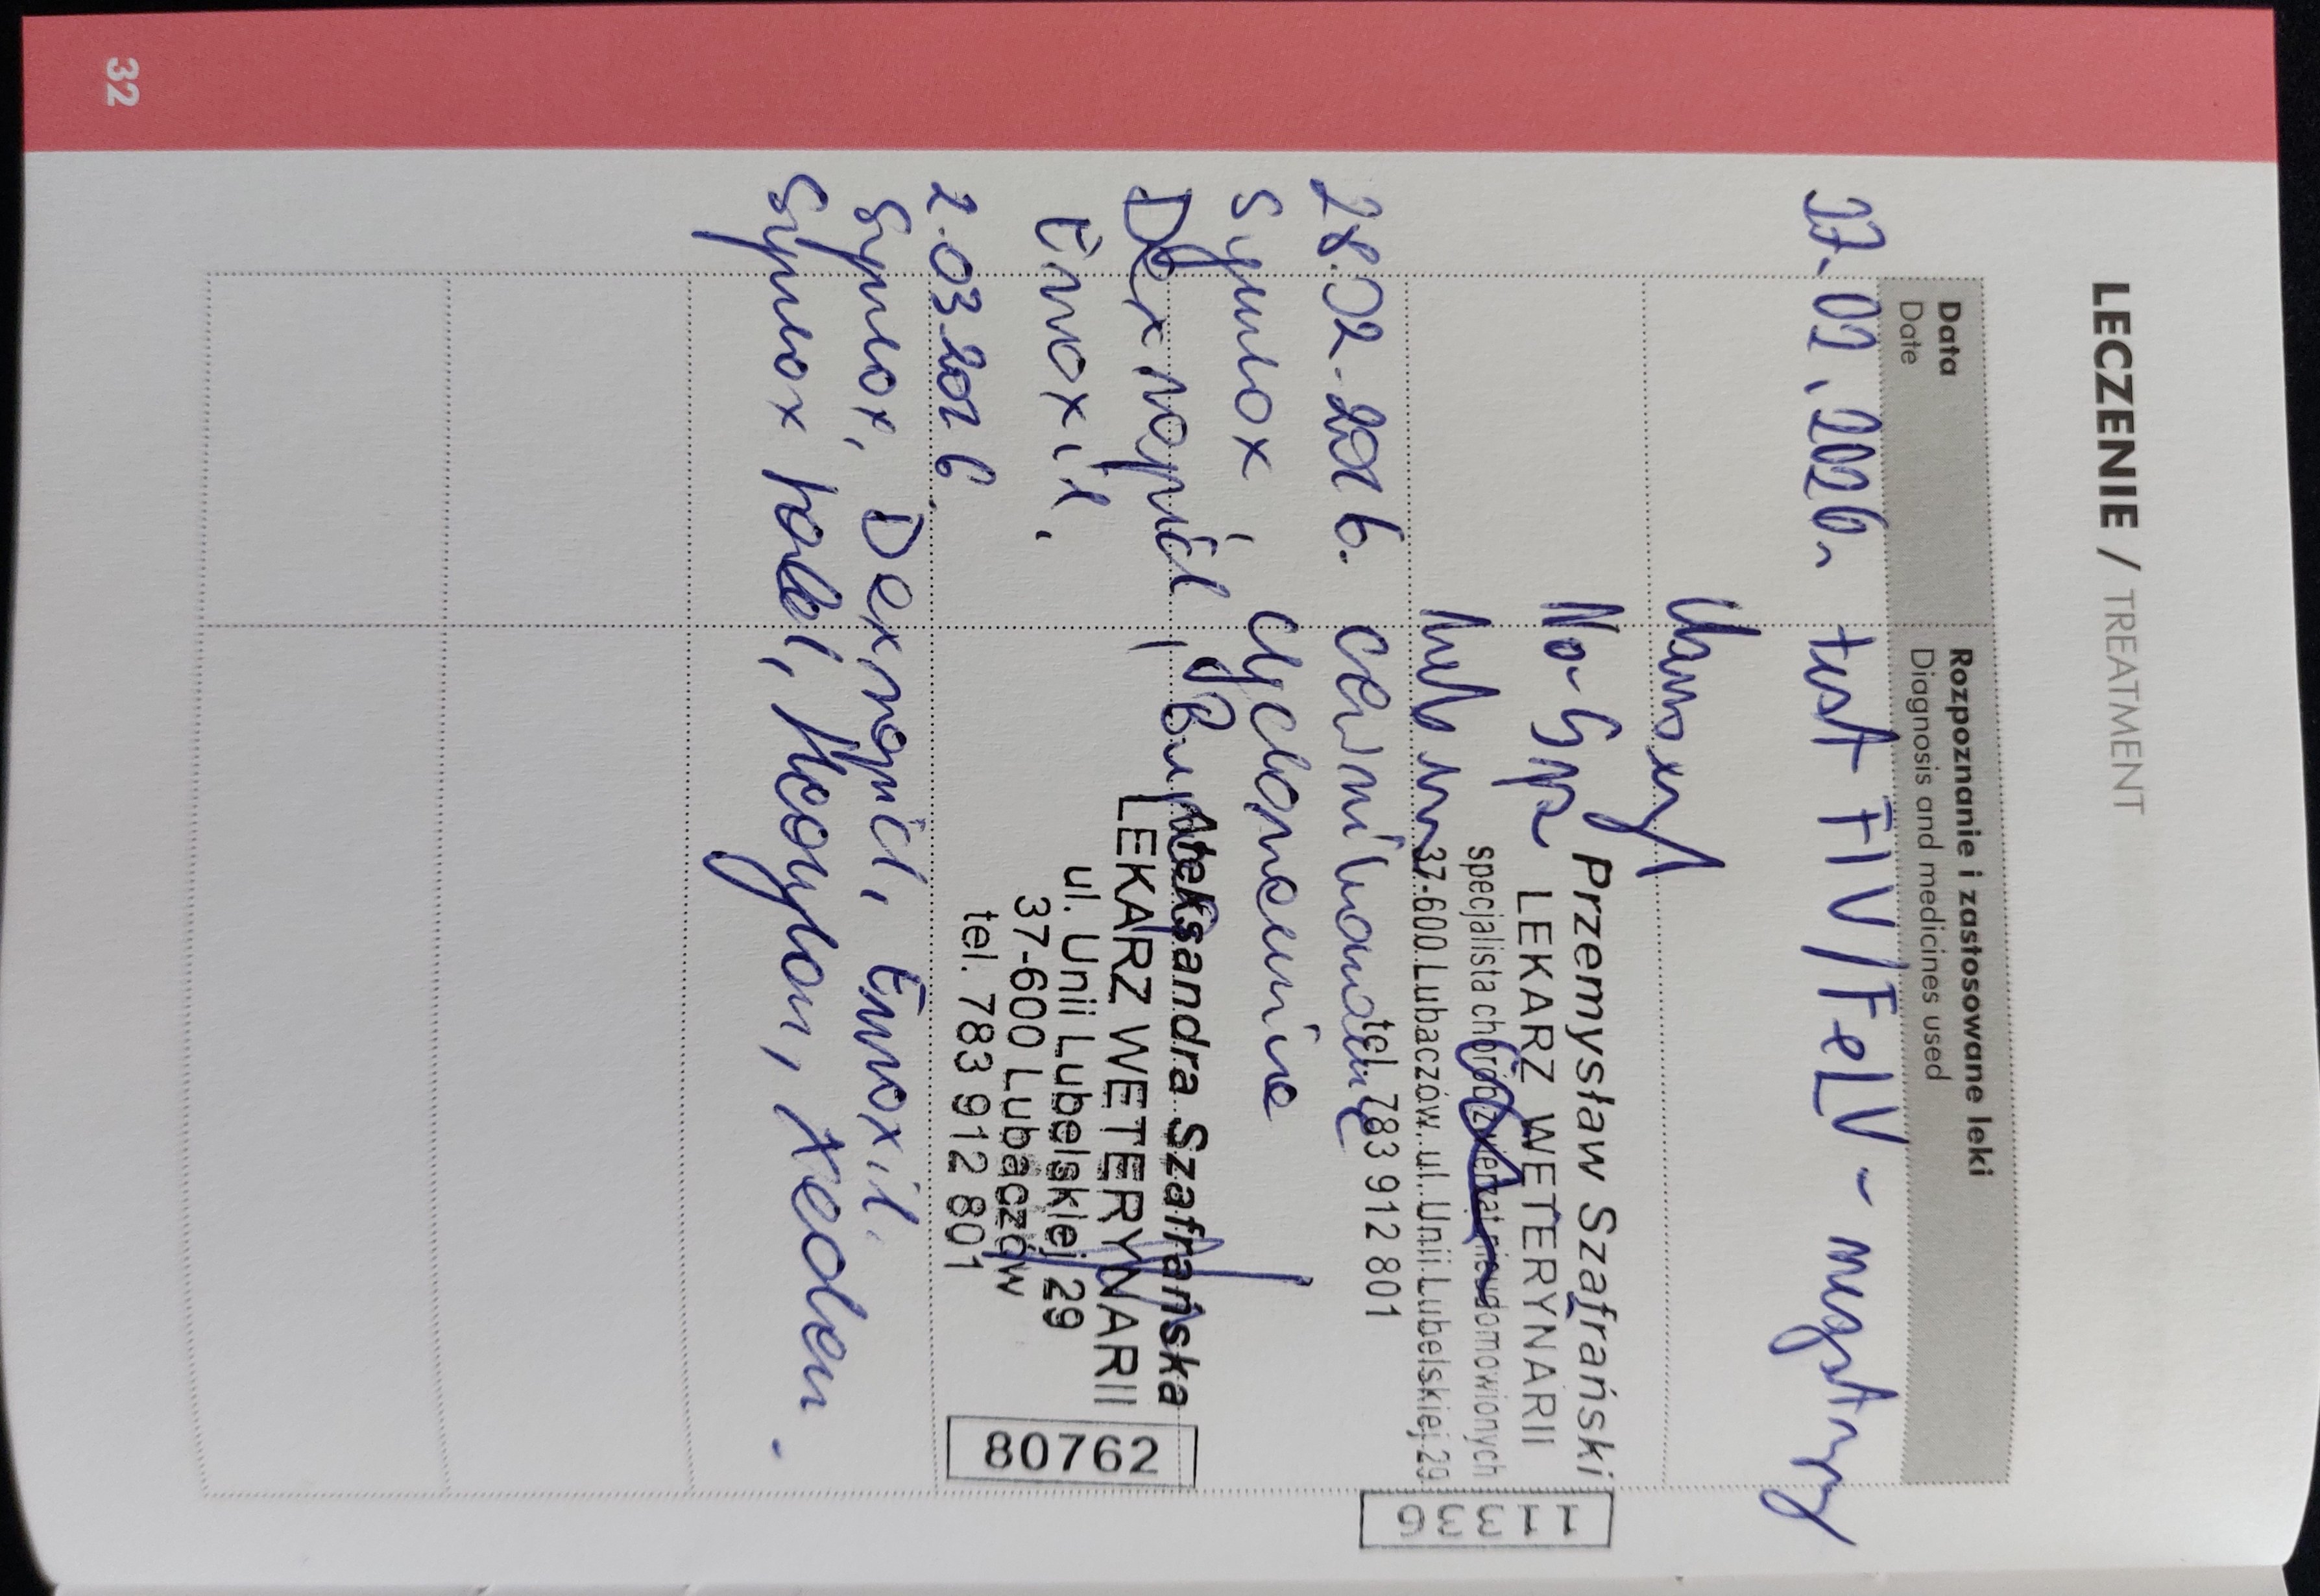 LECZENIE / TREATMENT
Data Rozpoznanie i zastosowane leki
Date Diagnosis and medicines used
27.02.2026. test FIV/FeLV - negatywny
No-Spa
Przemysław Szafrański
LEKARZ WETERYNARII
specjalista chorób zwierząt nieudomowionych
37-600 Lubaczów, ul. Unii Lubelskiej 29
tel. 783 912 801
11336
28.02.2026. cewnikowanie
Synulox, 
Dexrapid,
Enroxil,
Aleksandra Szafrańska
LEKARZ WETERYNARII
ul. Unii Lubelskiej 29
37-600 Lubaczów
tel. 783 912 801
80762
2.03.2026.
Synulox, Dexrapid, Enroxil.
Synulox tabl,
32